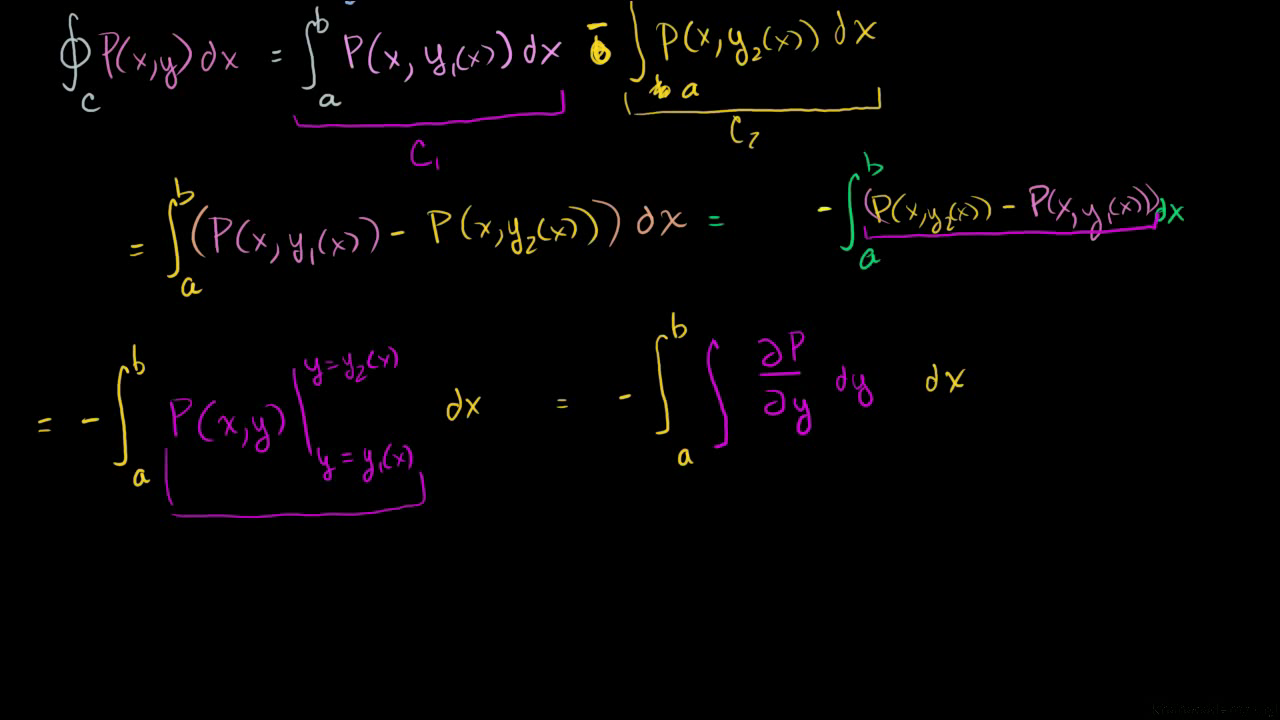 ∮_C P(x,y) dx = ∫_a^b P(x, y₁(x)) dx - ∫_a P(x, y₂(x)) dx
C₁ C₂
= ∫_a^b (P(x, y₁(x)) - P(x, y₂(x))) dx = - ∫_a^b (P(x, y₂(x)) - P(x, y₁(x))) dx
= - ∫_a^b P(x,y) |_{y=y₁(x)}^{y=y₂(x)} dx = - ∫_a^b ∫ ∂P/∂y dy dx